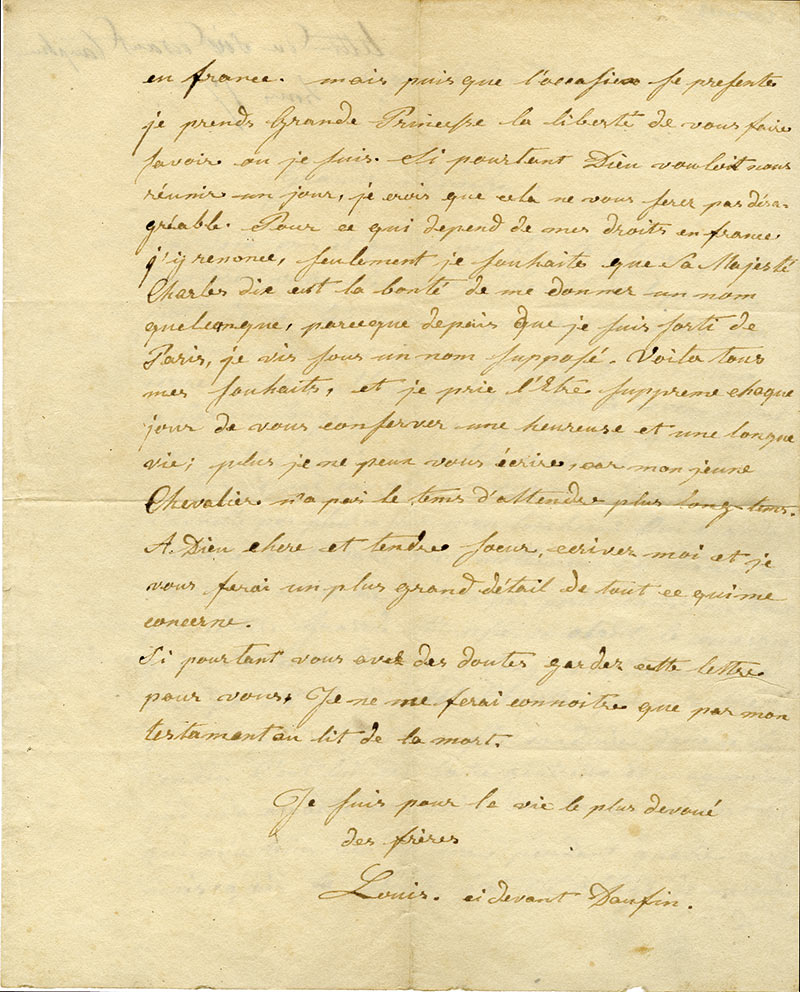 en france. mais puis que l'occasion se presente
je prends Grande Princesse la liberté de vous faire
savoir ou je suis. Si pourtant Dieu vouloit nous
réunir un jour, je crois que cela ne vous serez pas désa-
gréable. Pour ce qui depend de mes droits en france
j'y renonce, seulement je souhaite que Sa Majesté
Charles dix eut la bonté de me donner un nom
quelconque, parceque depuis que je suis sorti de
Paris, je vis sous un nom supposé. Voila tous
mes souhaits, et je prie l'Etre suppreme chaque
jour de vous conserver une heureuse et une longue
vie; plus je ne peux vous écrire, car mon jeune
Chevalier n'a pas le tems d'attendre plus long-tems.
A. Dieu chere et tendre soeur, ecrivez moi et je
vous ferai un plus grand détail de tout ce qui me
concerne.
Si pourtant vous avez des doutes gardez cette lettre
pour vous, Je ne me ferai connoitre que par mon
testament au lit de la mort.
Je suis pour la vie le plus devoué
des frères
Louis. ci devant Daufin.